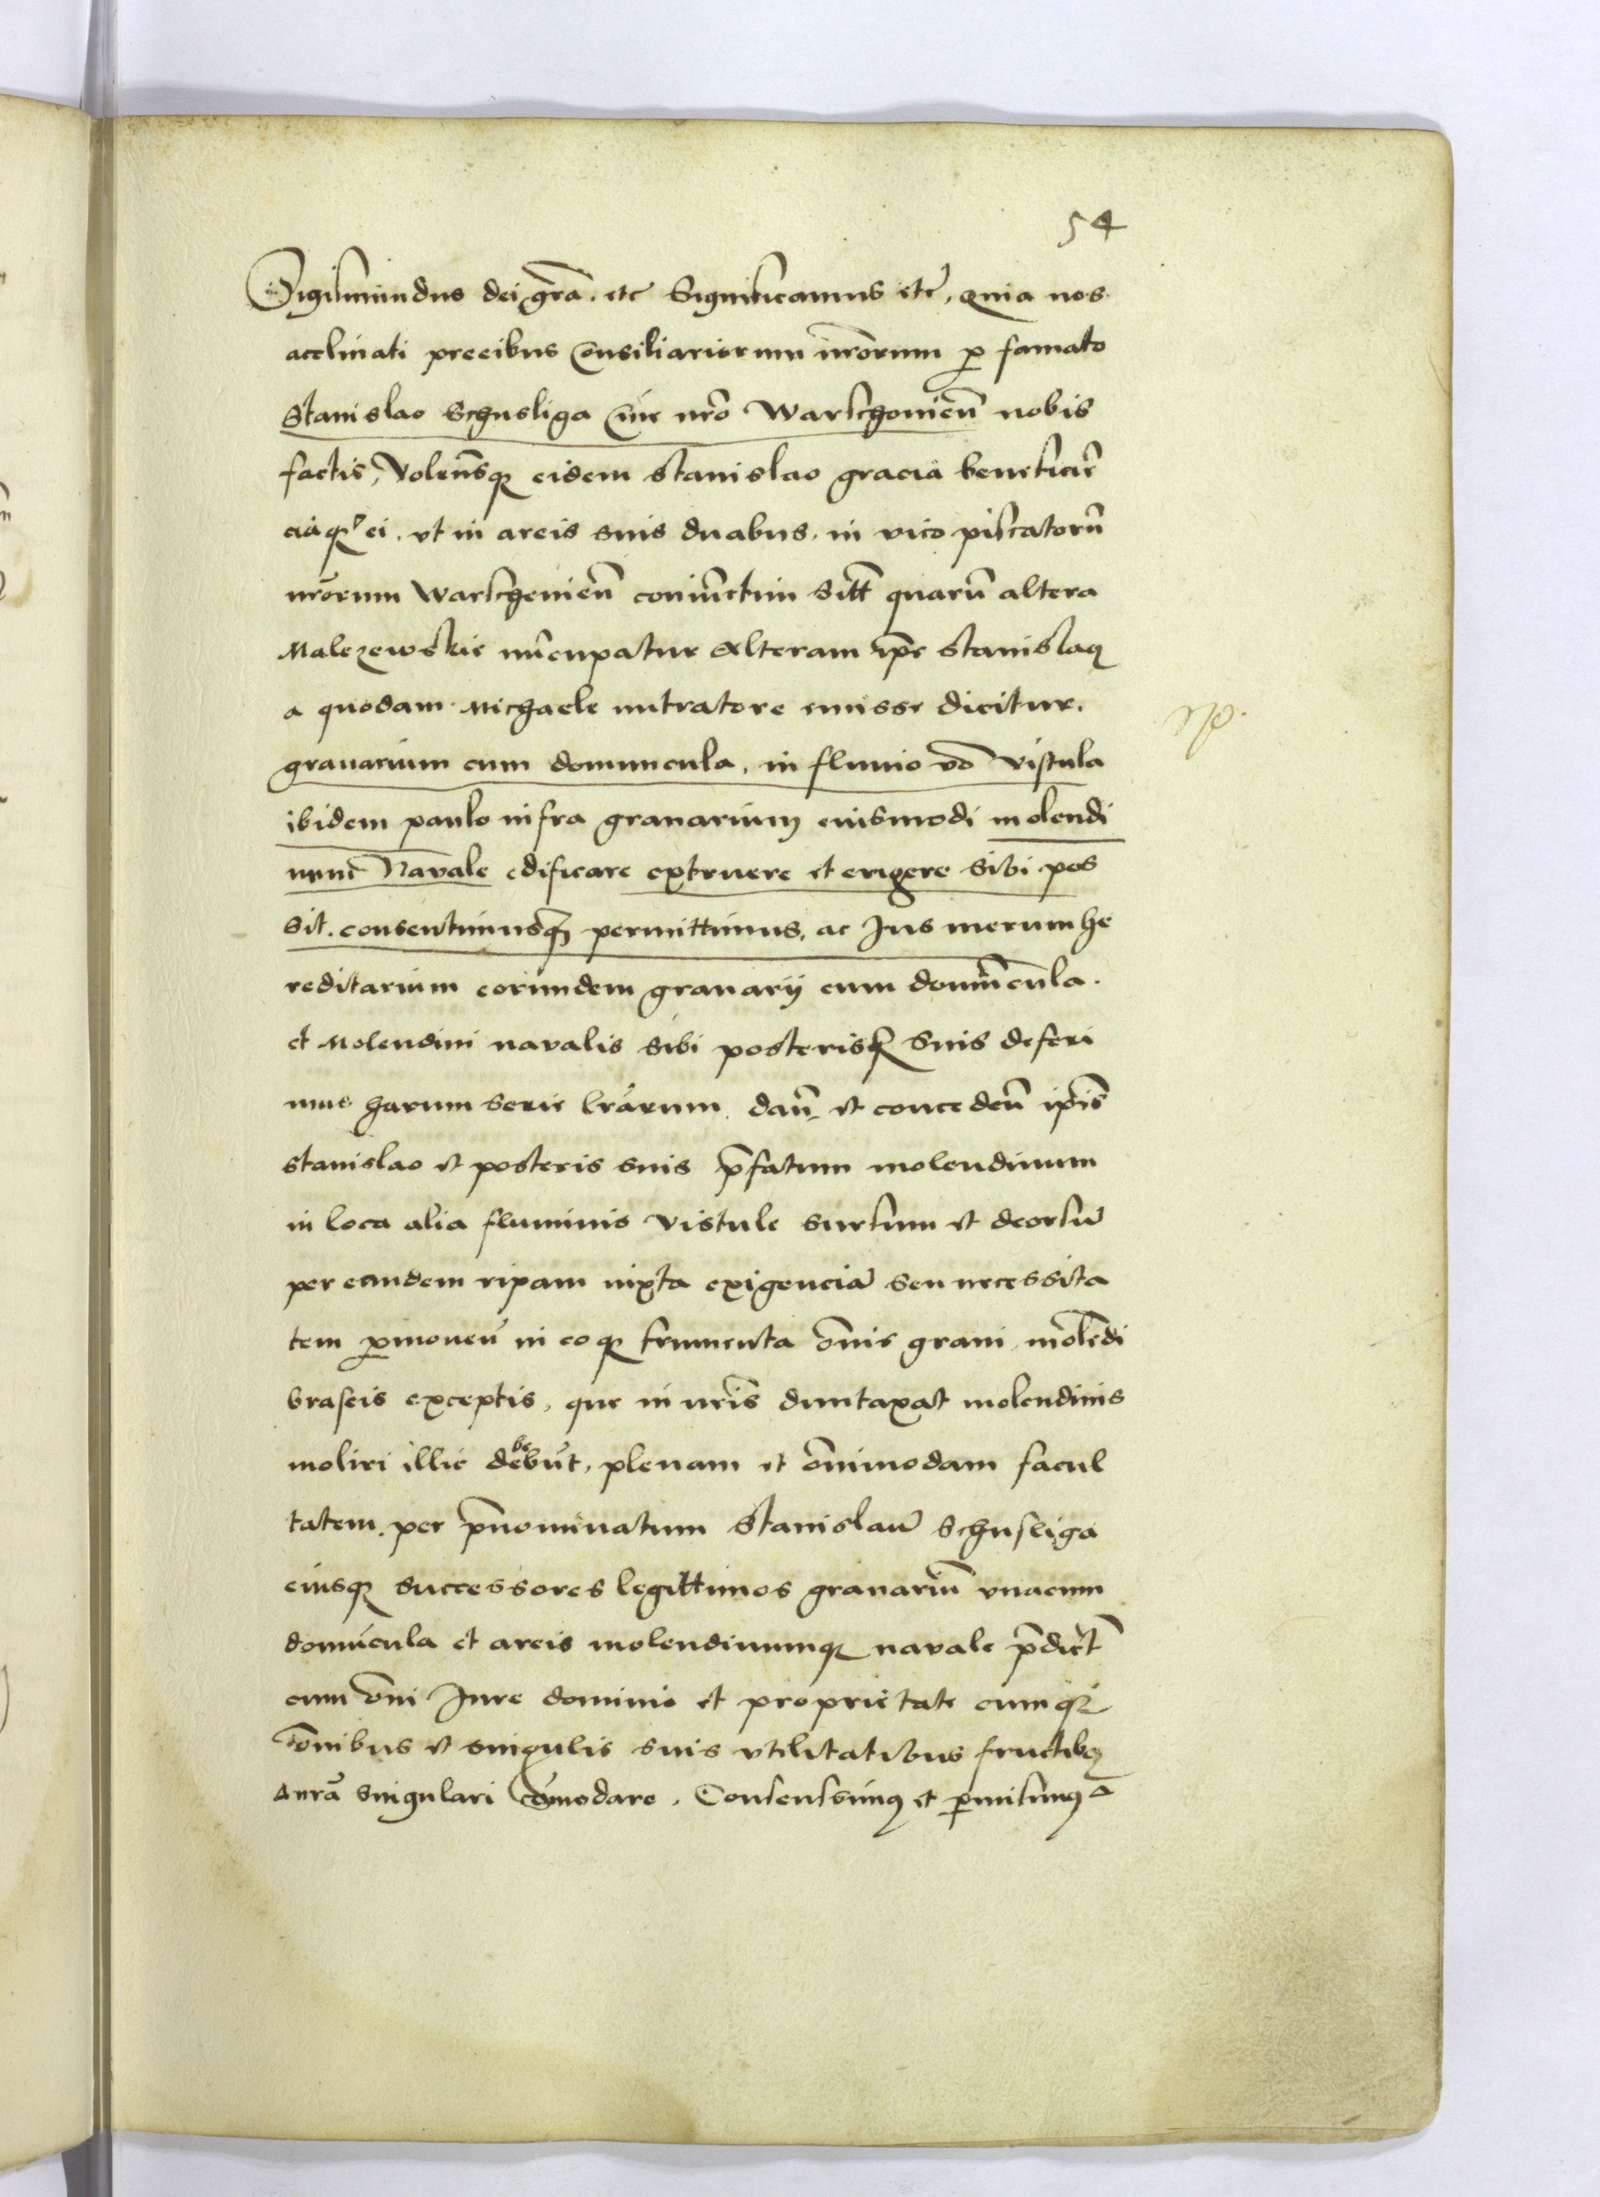 54
Sigismundus dei grā. etc Significamus etc, Quia nos
acclinati precibus Consiliariorum nrōrum p famato
Stanislao Schusliga Ciue nrō Warschouień nobis
factis, Volen̄sq eidem Stanislao graciā
ei. vt in areis suis duabus. in vico piscatorū
nrōrum Warschouień coniūctim sitī quarū altera
Malczewskie nūcupatur Alteram ipē Stanislaq
a quodam Michaele mitratore emisse dicitur.
granarium cum domuncula, in fluuio vō Vistula
ibidem paulo infra granarium eiusmodi molendi
num Navale edificare extruere et erigere sibi pos
sit. consentimusq permittimus, ac Jus merum he
reditarium eorundem granarij cum domūcula.
et Molendini navalis sibi posterisq suis deferi
mus harum serie lrārum. dań et conceden̄ ipīs
Stanislao et posteris suis p̄fatum molendinum
in loca alia fluminis Vistule sursum et deorsū
per eandem ripam iuxta exigenciā seu necessita
tem pmouen̄ in eoq frumenta ōnis grani molēdi
braseis exceptis, que in nrīs duntaxat molendinis
moliri illic debebūt, plenam et ōnimodam facul
tatem. per p̄nominatum Stanislaū Schusliga
eiusq successores legittimos granariū vnacum
domūcula et areis molendinumq navale p̄dict̄
cum ōni Jure dominio et proprietate cumq
ōnibus et singulis suis vtilitatibus fructibq
nrā singulari cōmodare. Consensimq et pmisimq